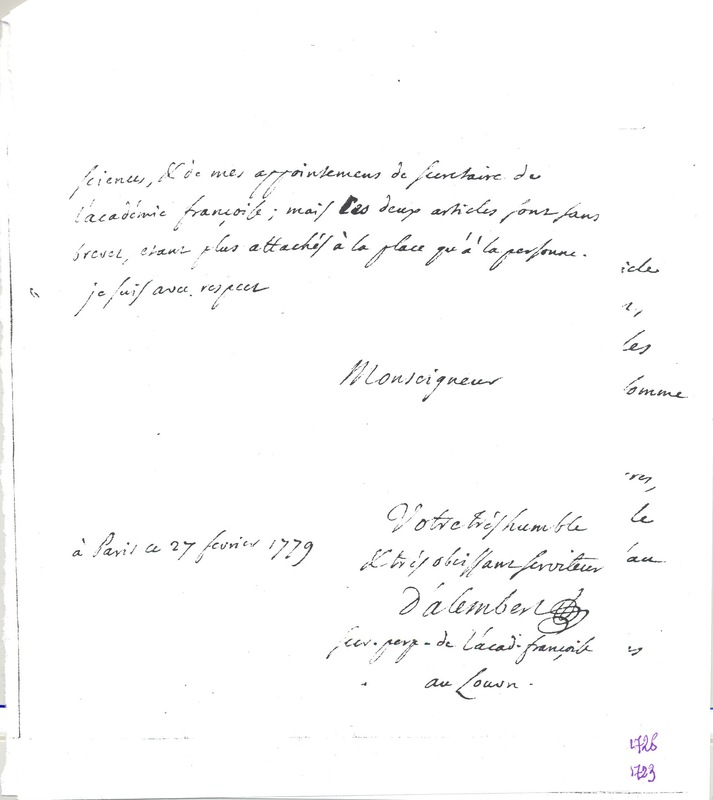 sciences, & de mes appointemens de secretaire de
l'académie françoise; mais ces deux articles sont sans
brevet, etant plus attachés à la place qu'à la personne.
je suis avec respect
Monseigneur
à Paris ce 27 fevrier 1779
Votre trés humble
& trés obeissant serviteur
D'alembert
secr. perp. de l'acad. françoise
au Louvre.
icle
les
somme
res,
le
au
es
1726
1723